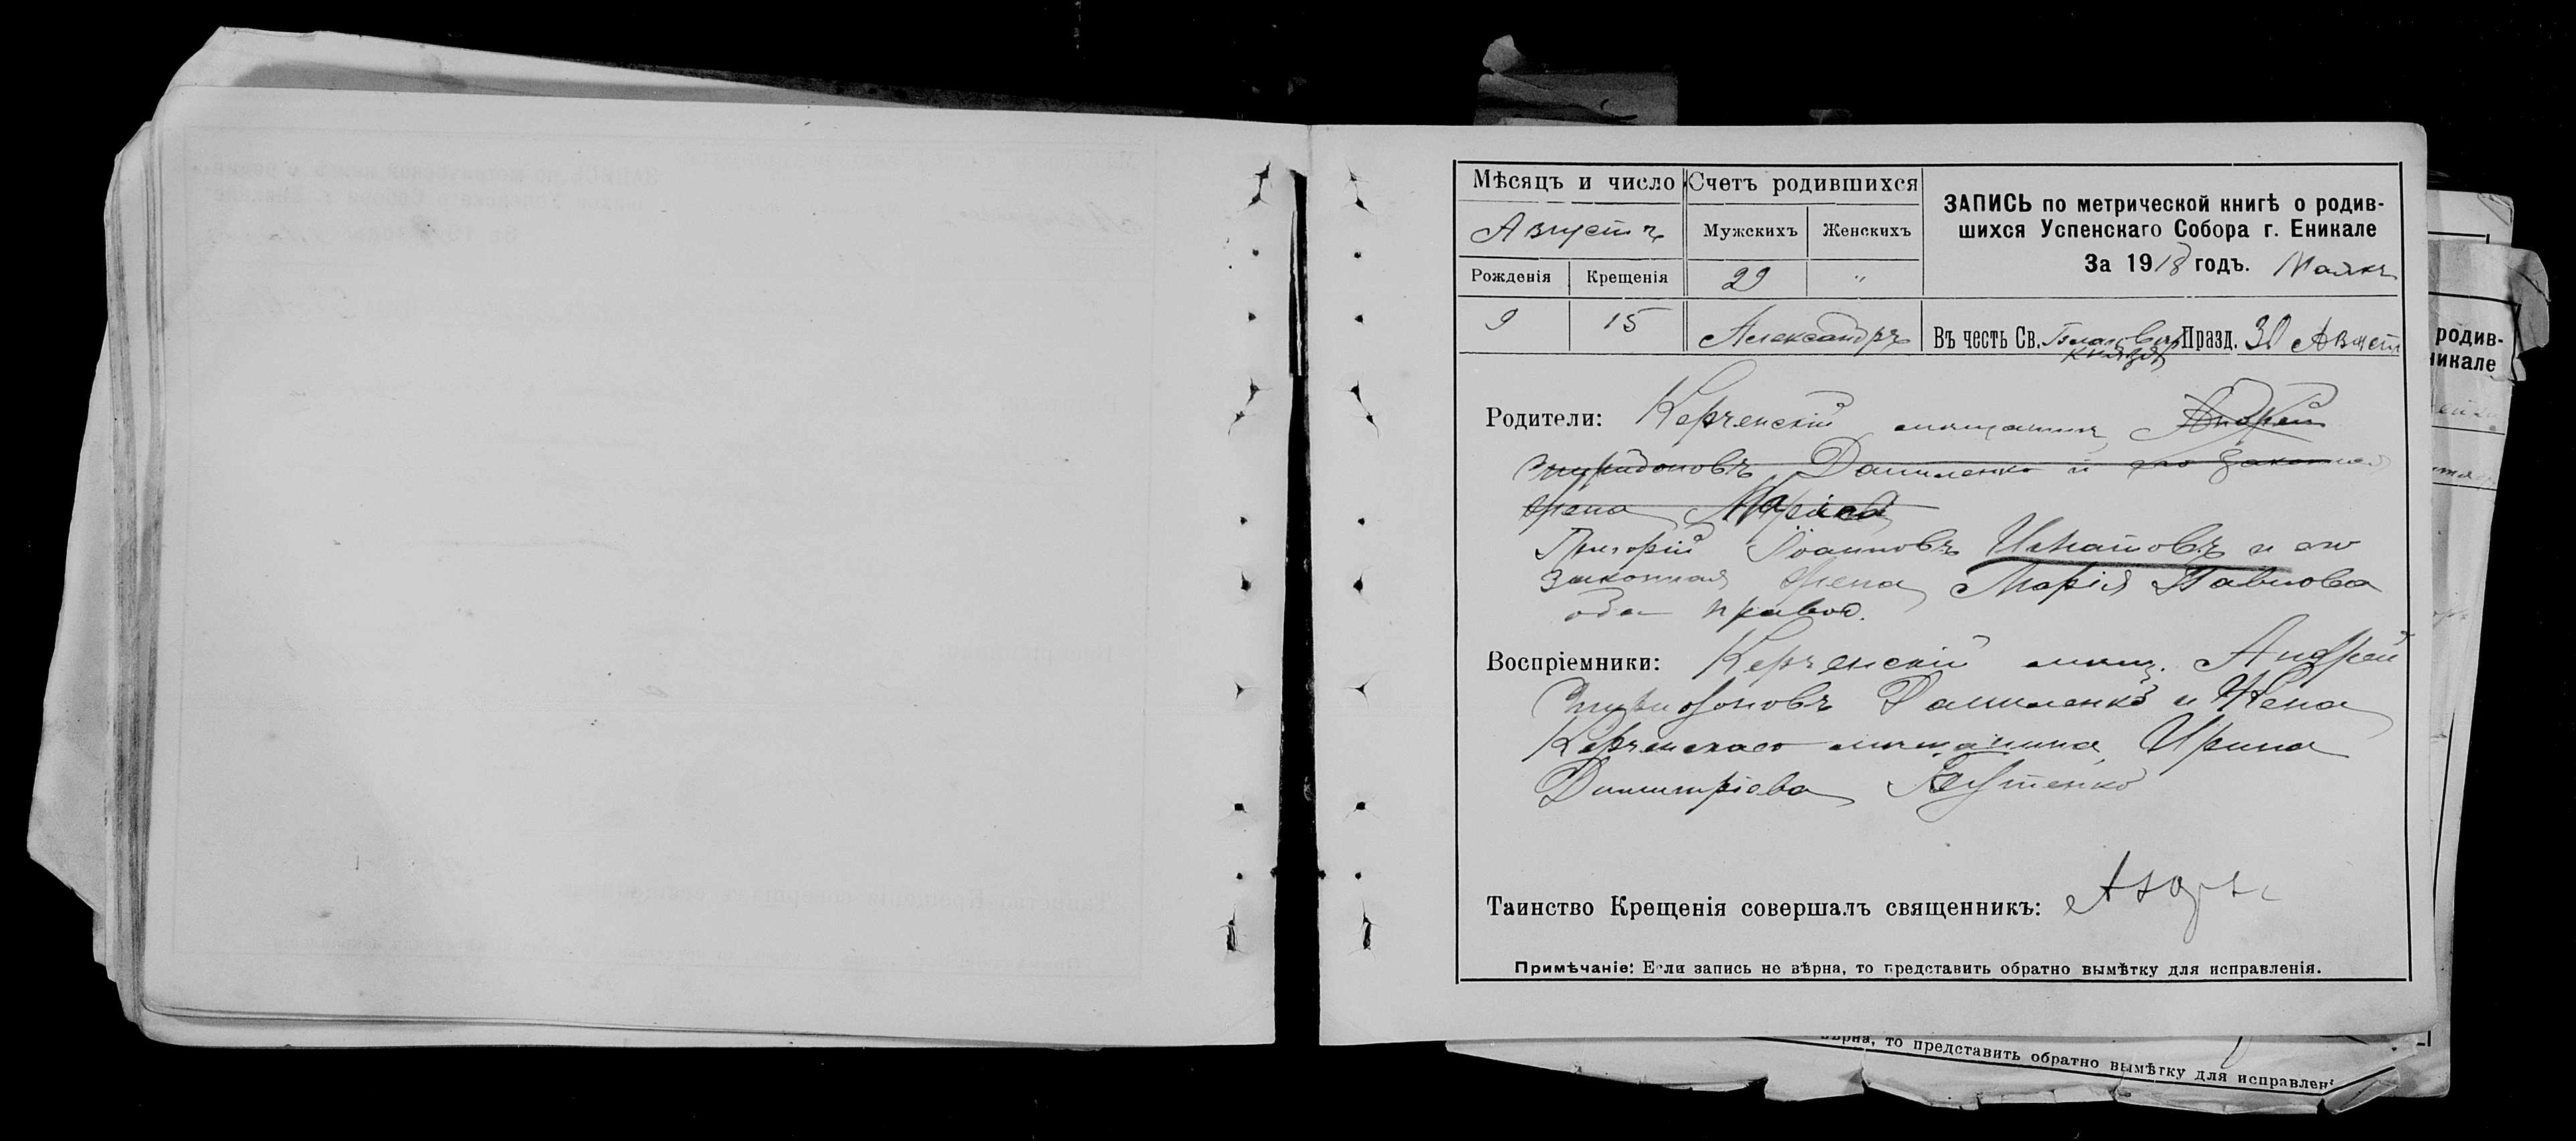 Мѣсяцъ и число
Счетъ родившихся
ЗАПИСЬ по метрической книгѣ о родив-
шихся Успенскаго Собора г. Еникале
За 1918 годъ. Маякъ
Августъ
Мужскихъ
Женскихъ
Рожденія
Крещенія
29
"
9
15
Александръ
Въ честь Св. Благовѣр. Празд. 30 Август
Князя
Родители: Керченскій мѣщанинъ Андрей
Спиридоновъ Даниленко и его законная
жена Марія
Григорій Іоанновъ Игнатовъ и его
законная жена Марія Павлова
оба правос.
Воспріемники: Керченскій мѣщ. Андрей
Спиридоновъ Даниленко и жена
Керченскаго мѣщанина Ирина
Димитріева
Таинство Крещенія совершалъ священникъ:
Примѣчаніе: Если запись не вѣрна, то представить обратно вымѣтку для исправленія.
родив-
никале
вѣрна, то представить обратно вымѣтку для исправлен